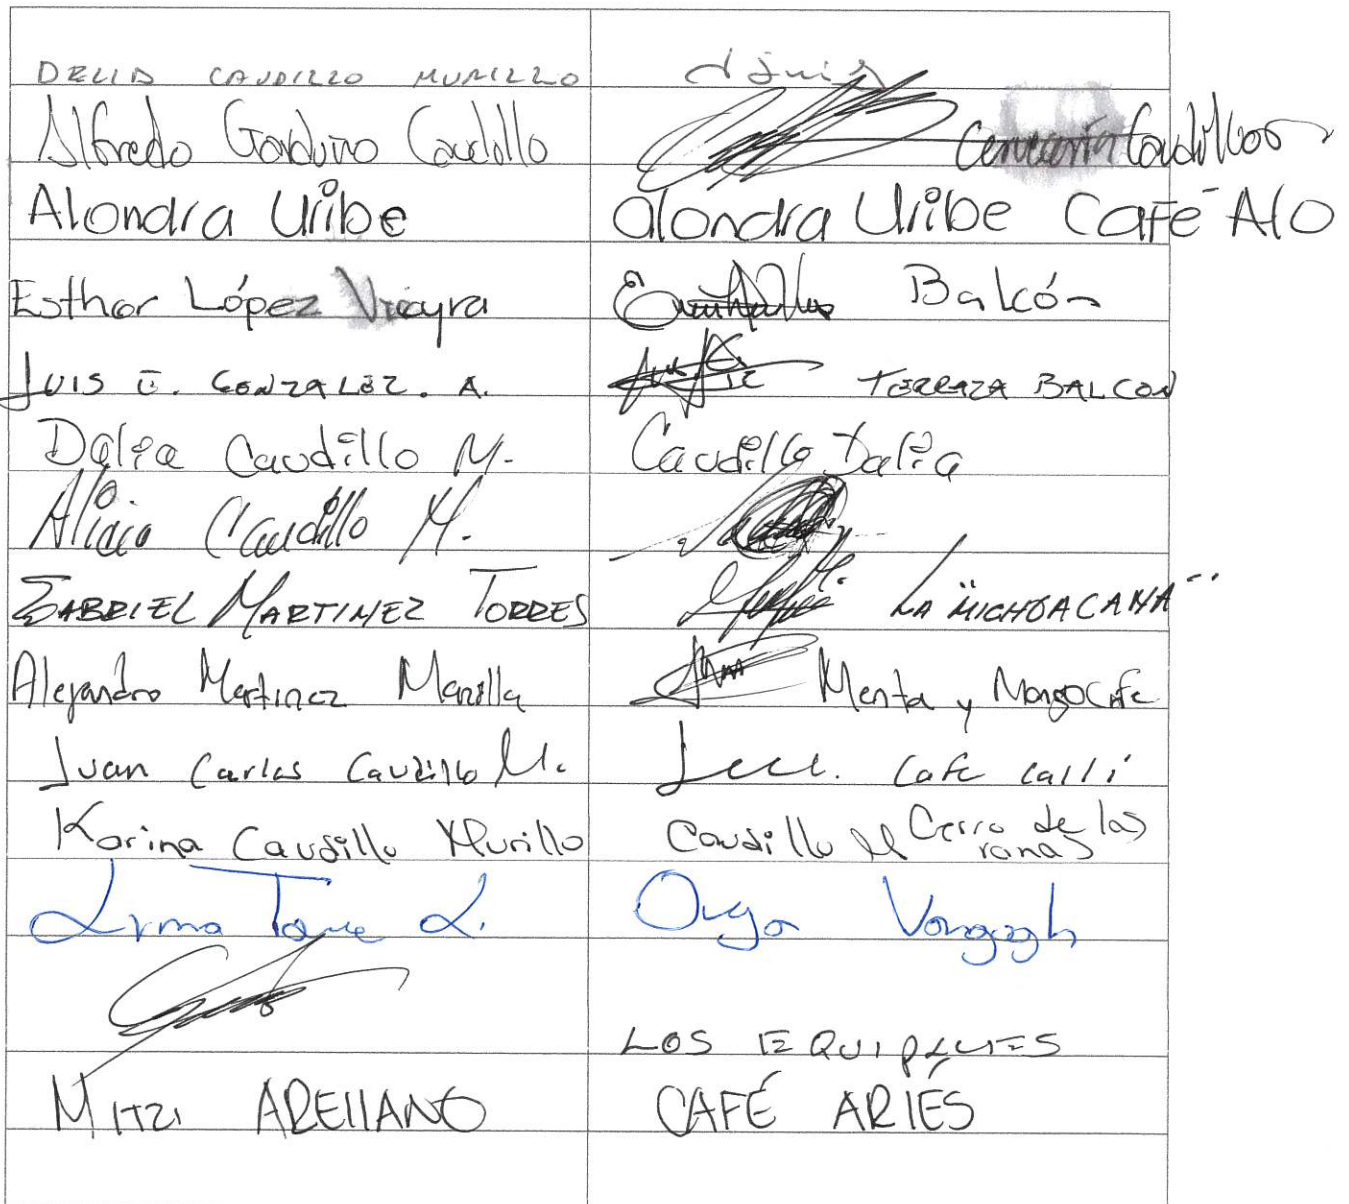 DELIA CAUDILLO MURILLO
Alfredo Garduño Caudillo Cervecería Caudillos
Alondra Uribe alondra Uribe Café Alo
Esther López Vieyra Balcón
LUIS E. GONZALEZ. A. TERRAZA BALCON
Dalia Caudillo M. Caudillo Dalia
Alicia Caudillo M.
GABRIEL MARTINEZ TORRES LA "MICHOACANA"
Alejandro Martinez Mancilla Menta y Mango Cafe
Juan Carlos Caudillo M. Cafe Calli
Karina Caudillo Murillo Caudillo M Cerro de las ranas
Irma L. Vangogh
LOS EQUIPALES
MITZI ARELLANO CAFÉ ARIES